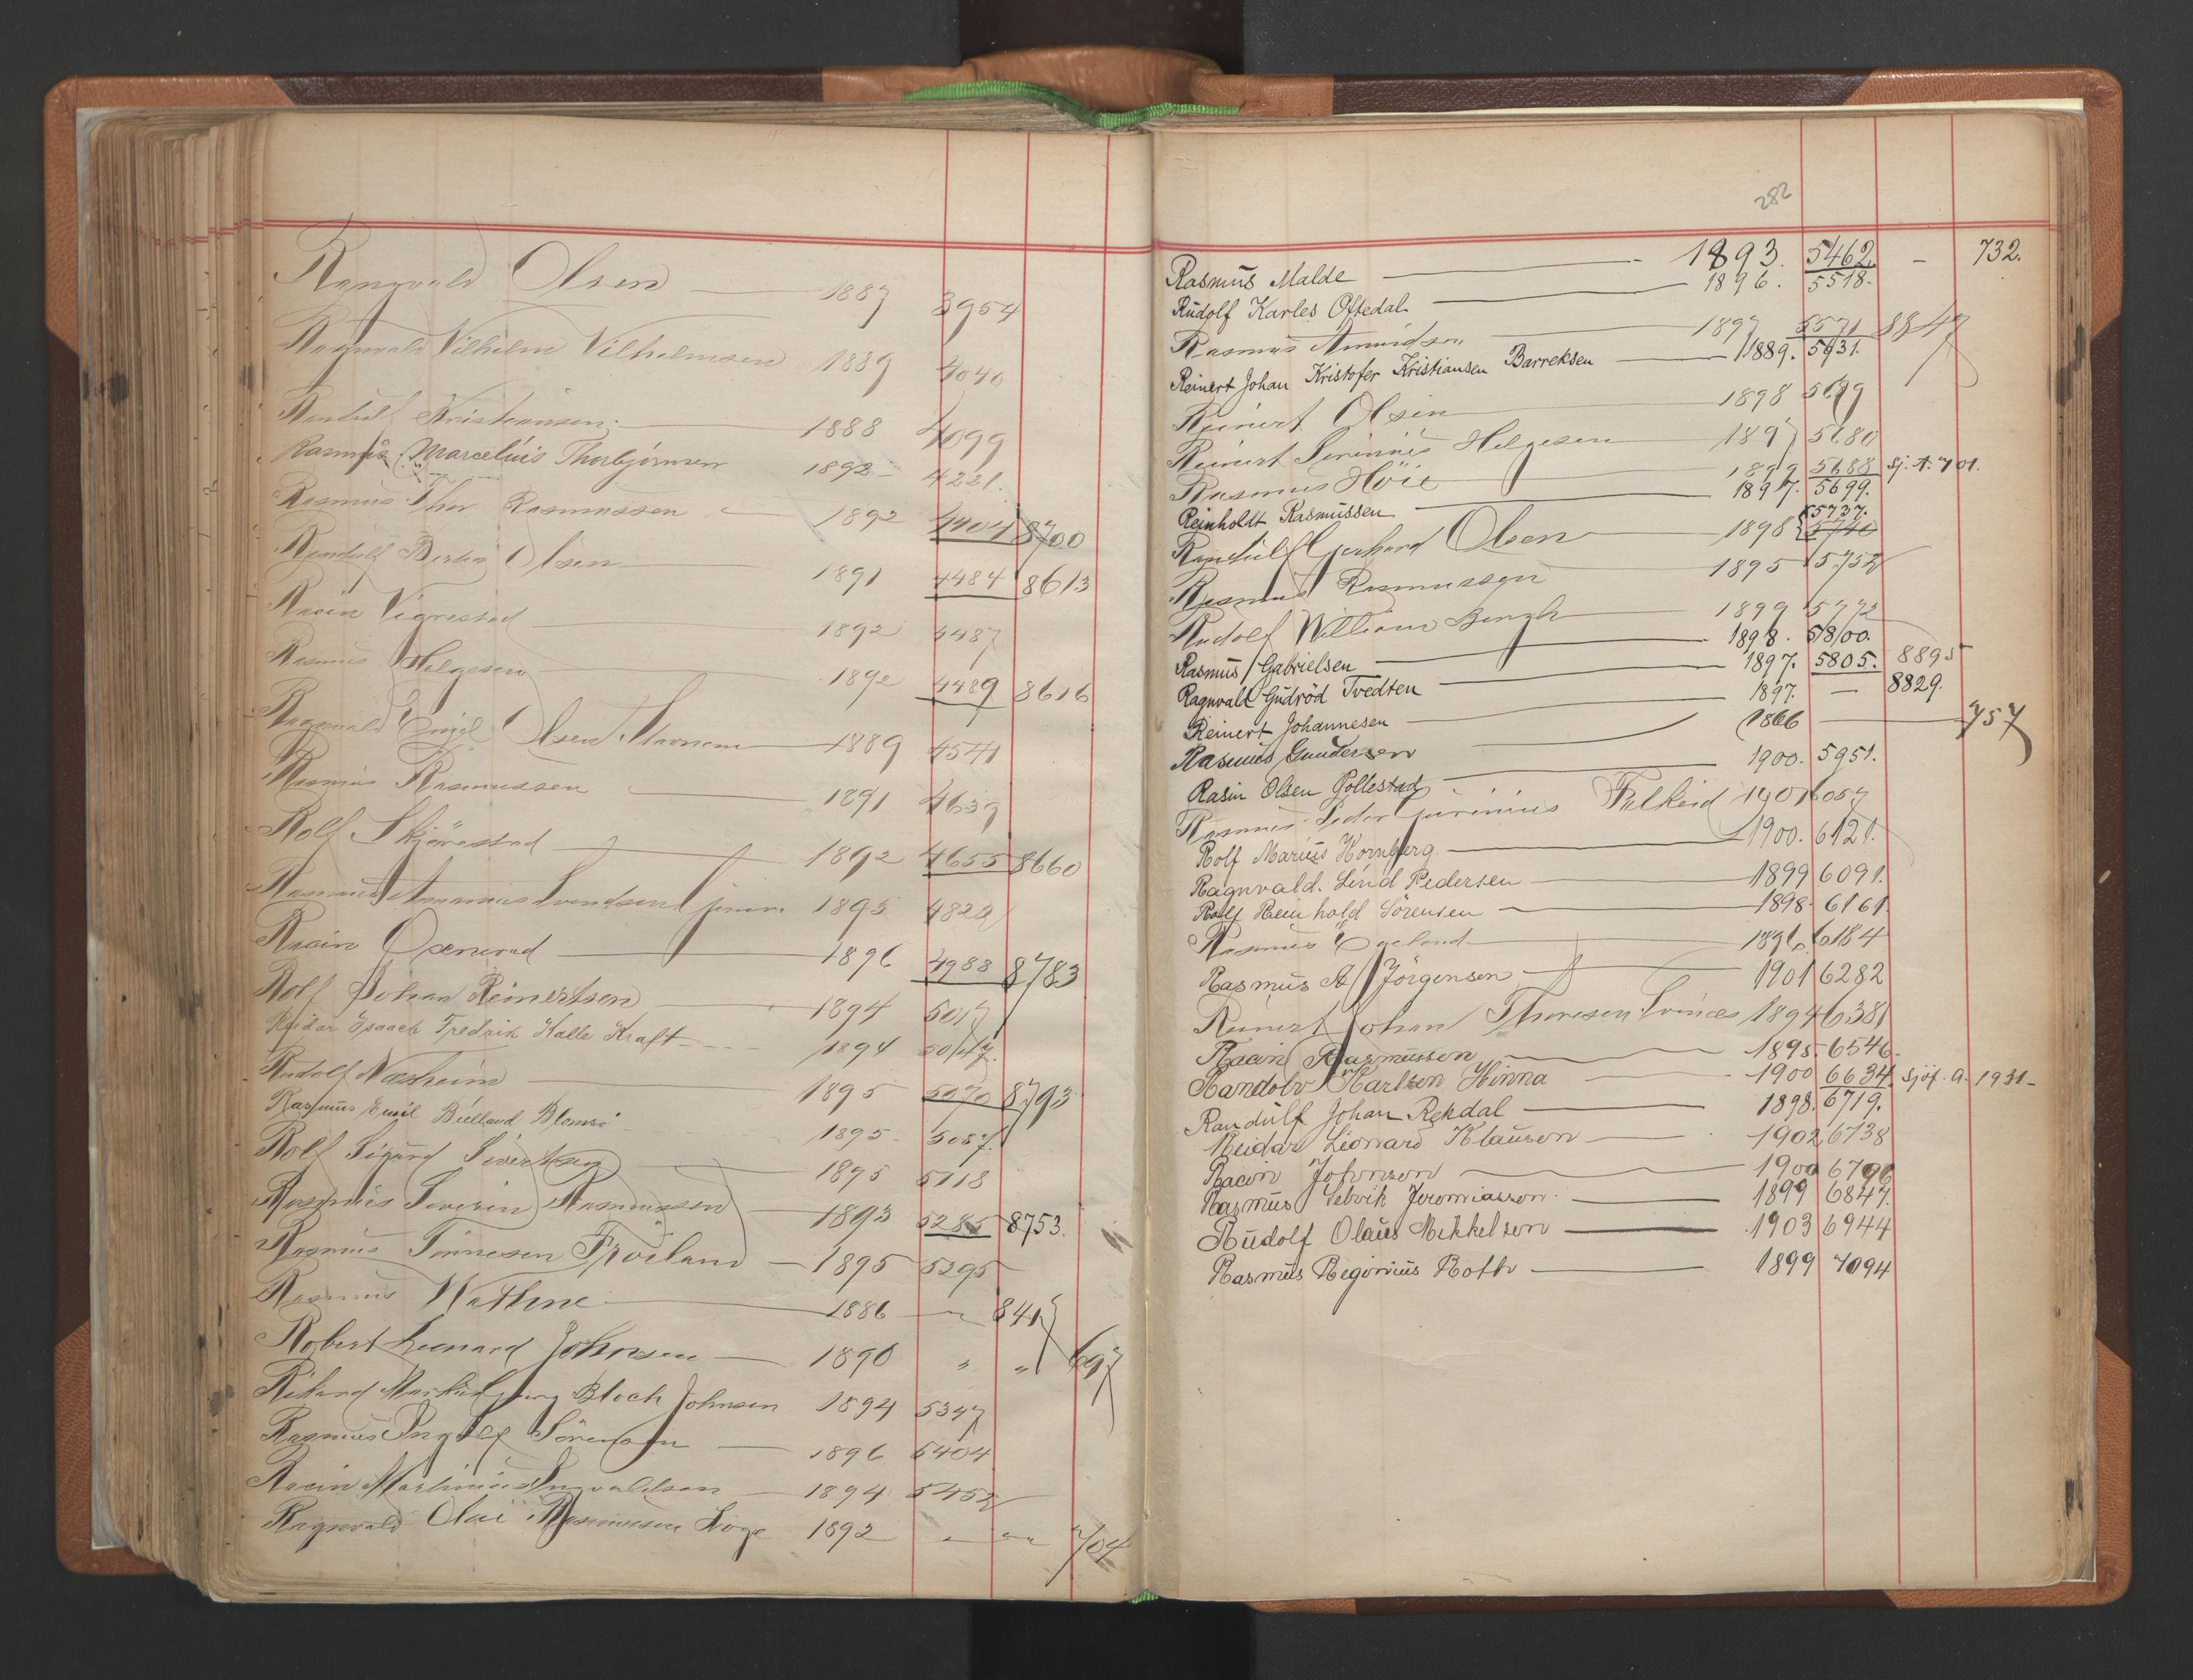 Ragnvald Olsen 1887 3954
Ragnvald Vilhelm Vilhelmsen 1889 4040
Randulf Kristiansen 1888 4099
Rasmus Marcelius Thorbjørnsen 1892 4221.
Rasmus Thor Rasmussen 1892 4404 8700
Randulf Bertin Olsen 1891 4484 8613
Rasin Vigrestad 1892 4487
Rasmus Helgesen 1892 4489 8616
Ragnvald Engel Olsen 1889 4541
Rasmus Rasmussen 1891 4639
Rolf Skjørestad 1892 4655 8660
Rasmus Svendsen junior 1895 4822
Rasin 1896 4988 8783
Rolf Johan Reinertsen 1894 5017
Reidar Isaach Fredrik Kalle Kraft 1894 5047.
Rudolf Næsheim 1895 5070 8793
Rasmus Emil Blomsø 1895 5087.
Rolf Sigurd Sivertsen 1895 5118
Rasmus Severin Rasmussen 1893 5285 8753.
Rasmus Tønnesen Frøiland 1895 5295
Rasmus Wathne 1886 — 8417
Robert Leonard Johnsen 1890 " " 697
Rikard Bloch Johnsen 1894 5347
Rasmus Ingolf Sørensen 1896 5404
Rasin Martinius Ingvaldsen 1894 5452
Ragnvald Olai Rasmussen Hoge 1892 - - 704
282
Rasmus Malde 1893. 5462. - 732.
Rudolf Karles Oftedal 1896. 5518.
Rasmus Amundsen 1897 5571 8847
Reinert Johan Kristofer Kristiansen Barreksen 1889. 5631.
Reinert Olsen 1898 5679
Reinert Severinus Helgesen 1897 5680
Rasmus Høie 1899 5688 Sj. A. 701.
Reinholdt Rasmussen 1897. 5699.
5737.
Randulf Gerhard Olsen 1898 5740
Rasmus Rasmussen 1895 5752
Rudolf William Bergh 1899 5772
Rasmus Gabrielsen 1898. 5800.
Ragnvald Gudrød Tvedten 1897. 5805. 8895
Reinert Johannesen 1897. — 8829.
Rasmus Gundersen 1866 757
Rasin Olsen Pollestad 1900. 5951.
Rasmus Peder 1901 6057
Rolf Marius Hornberg 1900. 6121.
Ragnvald. Lind Pedersen 1899 6091.
Rolf Reinhold Sørensen 1898. 6161.
Rasmus 1896 6184
Rasmus A Jörgensen 1901 6282
Reinert Johan Thoresen 1894 6381
Raain Rasmussen 1895. 6546.
Randolv Karlsen Hinna 1900 6634. Sjøf. A. 1931-
Randulf Johan Rekdal 1898. 6719.
Reidar Leonard Klausen 1902 6738
Racin Johnson 1900 6796
Rasmus Selvik Jeremiassen. 1899 6847.
Rudolf Olaus Mikkelsen 1903 6944
Rasmus Regonius Roth 1899 7094